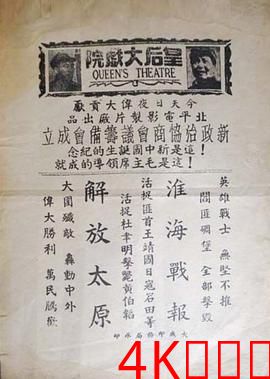 皇后大戲院
QUEEN'S THEATRE
今天日夜偉大貢獻
北平電影製片廠出品
新政治協商會議籌備會成立
這是新中國誕生的紀念!
這是毛主席領導的成就!
英雄戰士 無堅不摧
閻匪碉堡 全部擊毀
淮海戰報
活捉匪首王靖國日寇岩田等
活捉杜聿明擊斃黄伯韜
解放太原
大圍殲敵 轟動中外
偉大勝利 萬民騰歡
大成印務局承印
4K